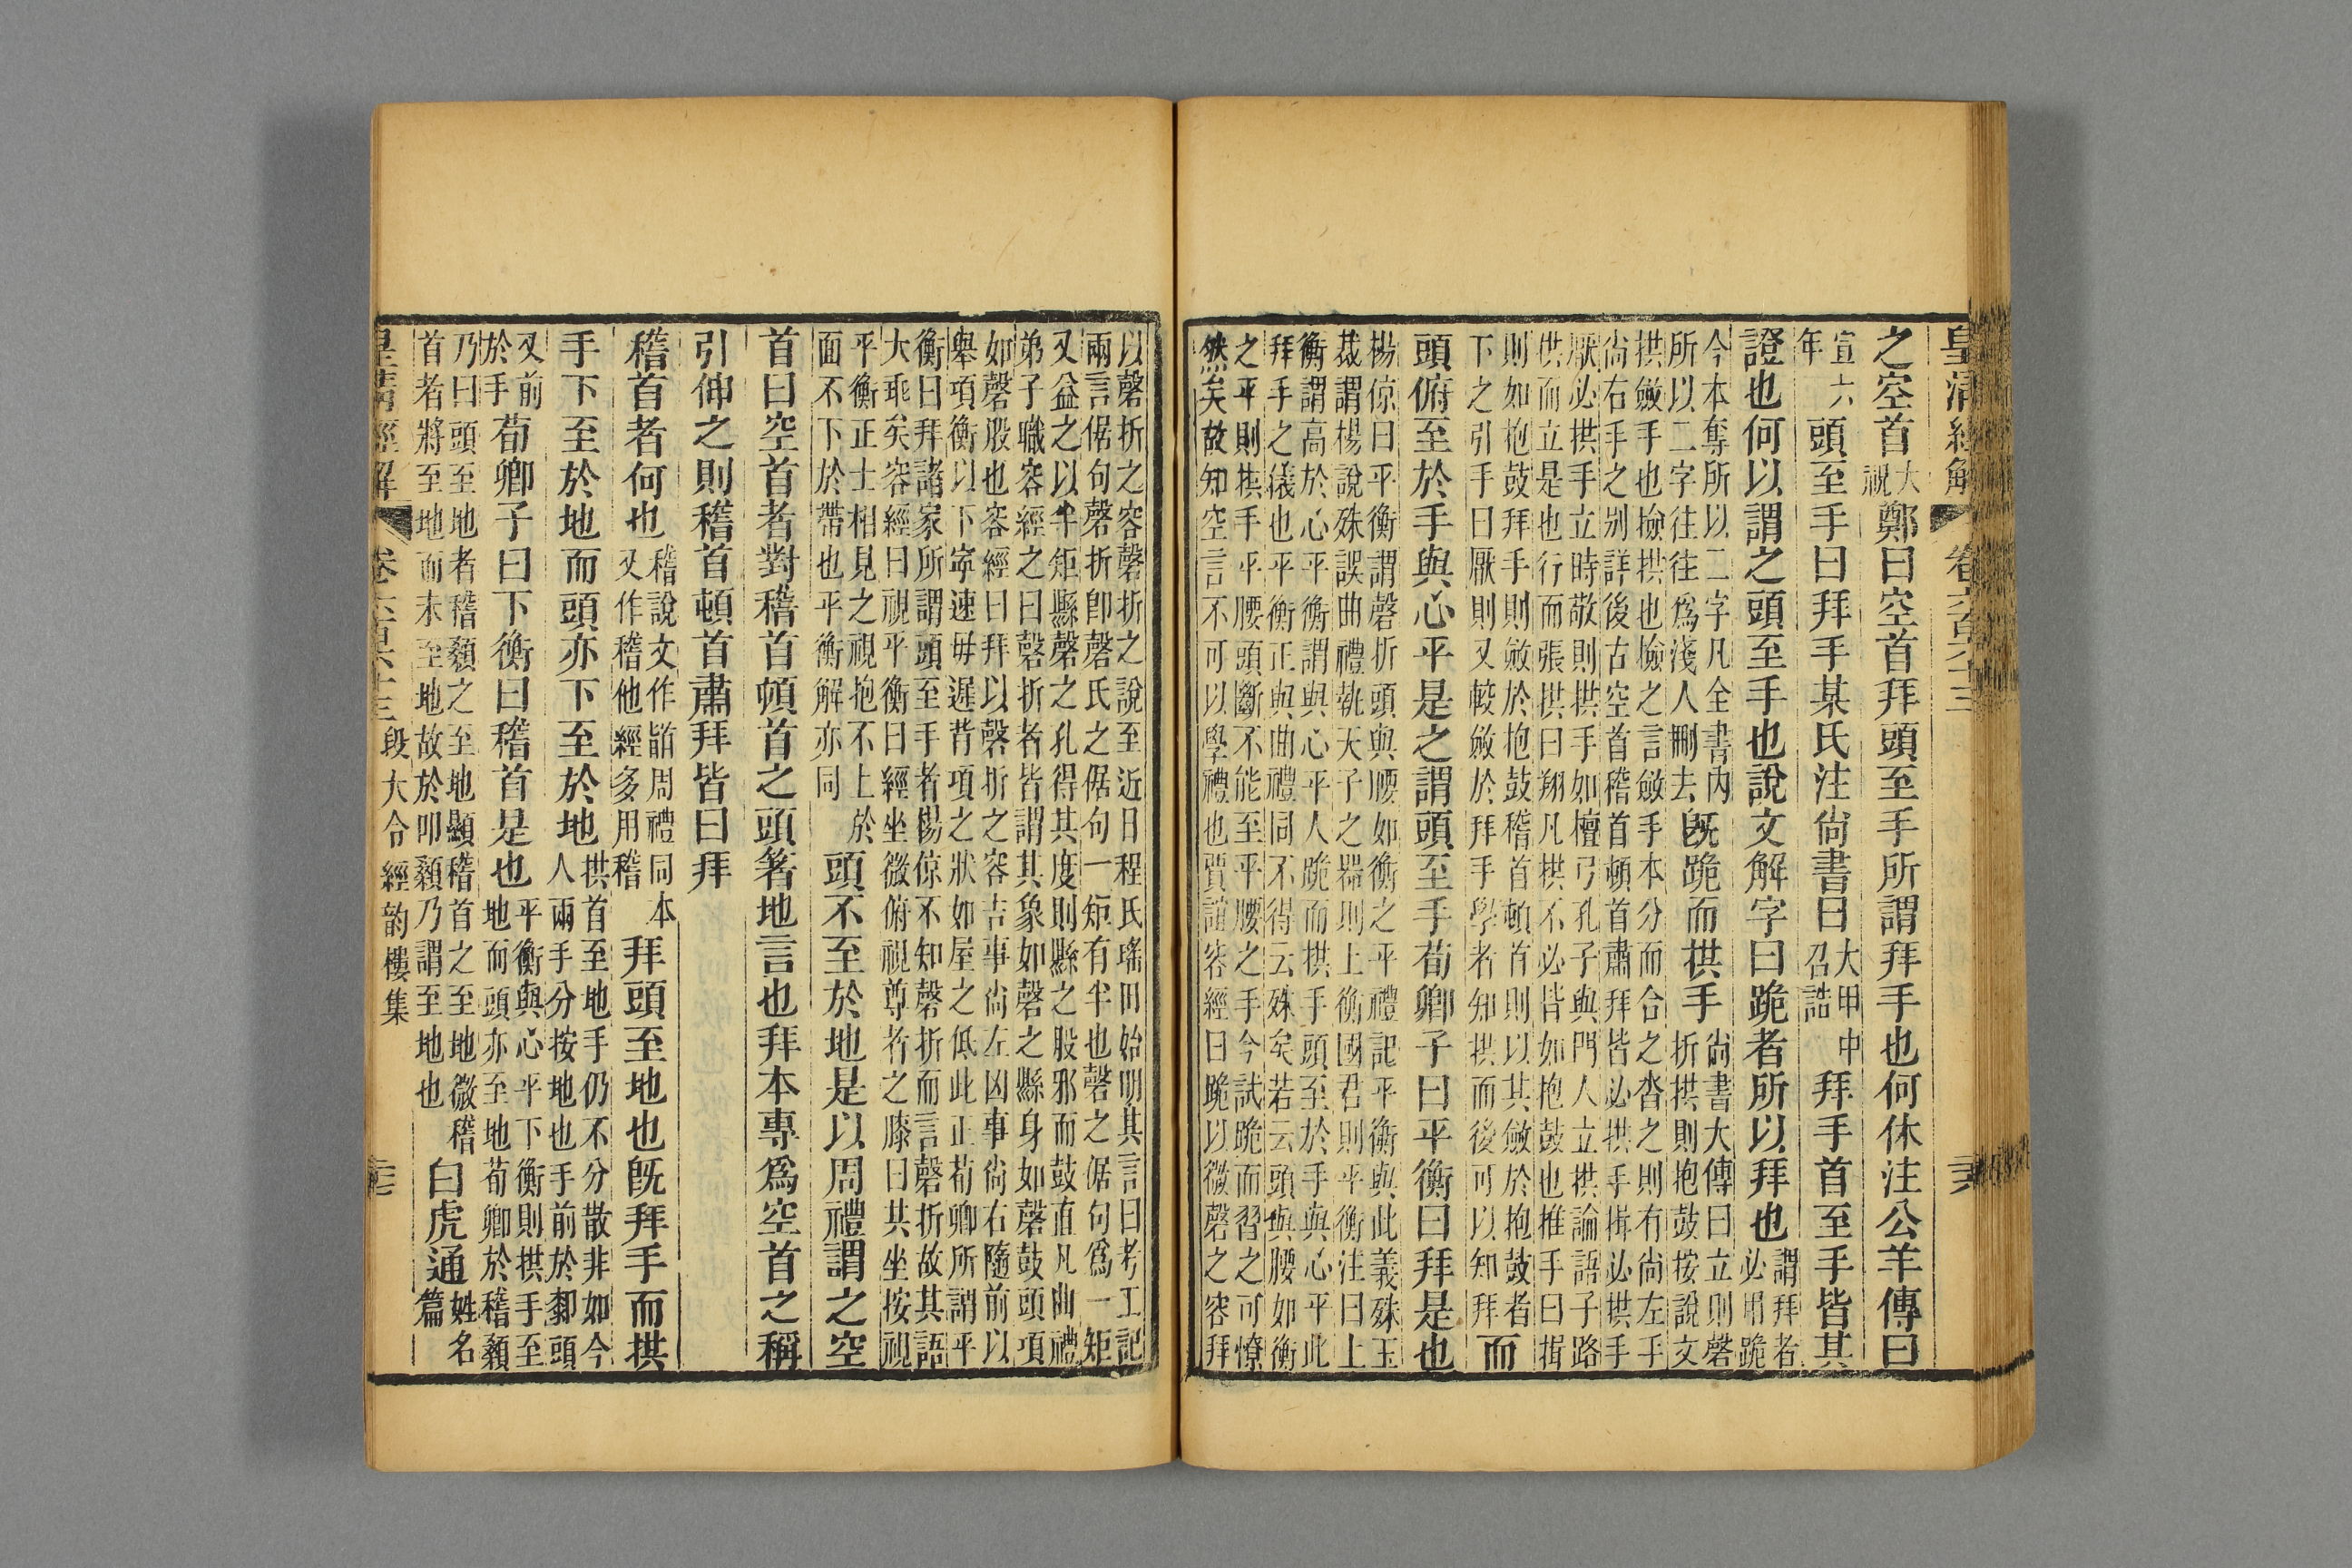 皇清經解 卷六百六十三 云
之空首大祝鄭曰空首拜頭至手所謂拜手也何休注公羊傳曰
宣六年頭至手曰拜手某氏注尙書曰大甲中召誥拜手首至手皆其
證也何以謂之頭至手也說文解字曰跪者所以拜也謂拜者必用跪
今本奪所以二字凡全書內所以二字往往爲淺人刪去旣跪而拱手尙書大傳曰立則磬折拱則抱鼓按說文
拱斂手也撿拱也撿之言斂手本分而合之沓之則有尙左手尙右手之別詳後古空首稽首頓首肅拜皆必拱手揖必拱手
厭必拱手立時敬則拱手如檀弓孔子與門人立拱論語子路供而立是也行而張拱曰翔凡拱不必皆如抱鼓也推手曰揖
則如抱鼓拜手則斂於抱鼓稽首頓首則以其斂於抱鼓者下之引手曰厭則又較斂於拜手學者知拱而後可以知拜而
頭俯至於手與心平是之謂頭至手荀卿子曰平衡曰拜是也
楊倞曰平衡謂磬折頭與腰如衡之平禮記平衡與此義殊玉裁謂楊說殊誤曲禮執天子之器則上衡國君則平衡注曰上
衡謂高於心平衡謂與心平人跪而拱手頭至於手與心平此拜手之儀也平衡正與曲禮同不得云殊矣若云頭與腰如衡
之平則拱手平腰頭斷不能至平腰之手今試跪而習之可憭然矣故知空言不可以學禮也賈誼容經曰跪以微磬之容拜
以磬折之容磬折之說至近日程氏瑤田始明其言曰考工記兩言倨句磬折卽磬氏之倨句一矩有半也磬之倨句爲一矩
又益之以半矩縣磬之孔得其度則縣之股邪而鼓直凡曲禮弟子職容經之曰磬折者皆謂其象如磬之縣身如磬鼓頭項
如磬股也容經曰拜以磬折之容吉事尙左凶事尙右隨前以舉項衡以下寧速毋遲背項之狀如屋之低此正荀卿所謂平
衡曰拜諸家所謂頭至手者楊倞不知磬折而言磬折故其語大乖矣容經曰視平衡曰經坐微俯視尊者之膝曰共坐按視
平衡正士相見之視抱不上於面不下於帶也平衡解亦同頭不至於地是以周禮謂之空
首曰空首者對稽首頓首之頭箸地言也拜本專爲空首之稱
引伸之則稽首頓首肅拜皆曰拜
稽首者何也稽說文作䭫周禮同本又作稽他經多用稽拜頭至地也旣拜手而拱
手下至於地而頭亦下至於地拱首至地手仍不分散非如今人兩手分按地也手前於厀頭
又前於手荀卿子曰下衡曰稽首是也平衡與心平下衡則拱手至地而頭亦至地荀卿於稽顙
乃曰頭至地者稽顙之至地顯稽首之至地微稽首者將至地而未至地故於叩顙乃謂至地也白虎通姓名篇
皇清經解 卷六百六十三 段大令經韵樓集 云